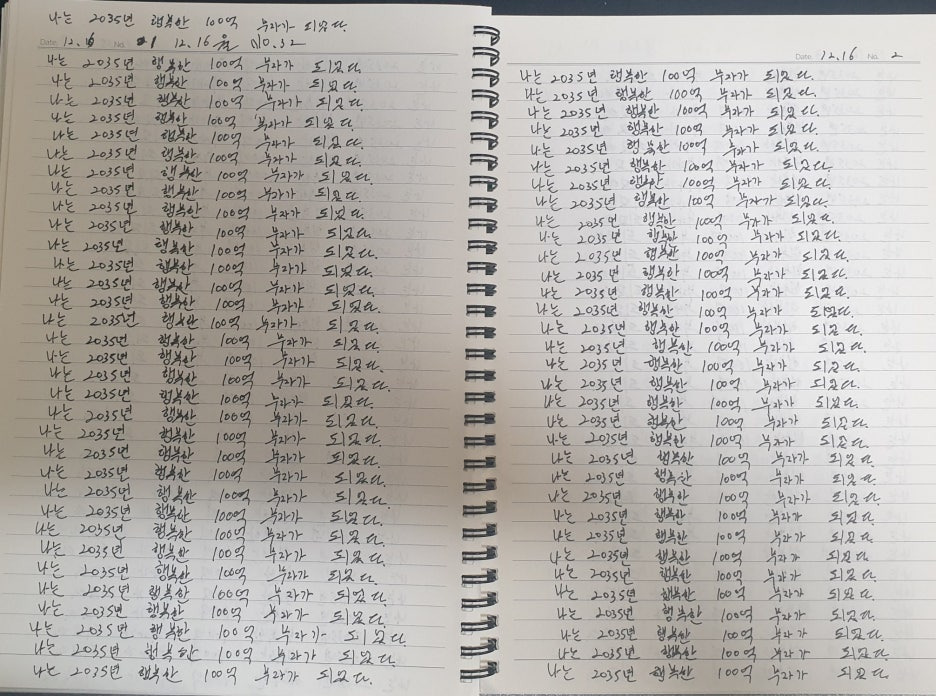 나는 2035년 행복한 100억 부자가 되었다.
Date. 12. 16 No. 1 12.16을 NO.32
나는 2035년 행복한 100억 부자가 되었다.
나는 2035년 행복한 100억 부자가 되었다.
나는 2035년 행복한 100억 부자가 되었다.
나는 2035년 행복한 100억 부자가 되었다.
나는 2035년 행복한 100억 부자가 되었다.
나는 2035년 행복한 100억 부자가 되었다.
나는 2035년 행복한 100억 부자가 되었다.
나는 2035년 행복한 100억 부자가 되었다.
나는 2035년 행복한 100억 부자가 되었다.
나는 2035년 행복한 100억 부자가 되었다.
나는 2035년 행복한 100억 부자가 되었다.
나는 2035년 행복한 100억 부자가 되었다.
나는 2035년 행복한 100억 부자가 되었다.
나는 2035년 행복한 100억 부자가 되었다.
나는 2035년 행복한 100억 부자가 되었다.
나는 2035년 행복한 100억 부자가 되었다.
나는 2035년 행복한 100억 부자가 되었다.
나는 2035년 행복한 100억 부자가 되었다.
나는 2035년 행복한 100억 부자가 되었다.
나는 2035년 행복한 100억 부자가 되었다.
나는 2035년 행복한 100억 부자가 되었다.
나는 2035년 행복한 100억 부자가 되었다.
나는 2035년 행복한 100억 부자가 되었다.
나는 2035년 행복한 100억 부자가 되었다.
나는 2035년 행복한 100억 부자가 되었다.
나는 2035년 행복한 100억 부자가 되었다.
나는 2035년 행복한 100억 부자가 되었다.
나는 2035년 행복한 100억 부자가 되었다.
나는 2035년 행복한 100억 부자가 되었다.
나는 2035년 행복한 100억 부자가 되었다.
나는 2035년 행복한 100억 부자가 되었다.
나는 2035년 행복한 100억 부자가 되었다.
나는 2035년 행복한 100억 부자가 되었다.
Date. 12.16 No. 2
나는 2035년 행복한 100억 부자가 되었다.
나는 2035년 행복한 100억 부자가 되었다.
나는 2035년 행복한 100억 부자가 되었다.
나는 2035년 행복한 100억 부자가 되었다.
나는 2035년 행복한 100억 부자가 되었다.
나는 2035년 행복한 100억 부자가 되었다.
나는 2035년 행복한 100억 부자가 되었다.
나는 2035년 행복한 100억 부자가 되었다.
나는 2035년 행복한 100억 부자가 되었다.
나는 2035년 행복한 100억 부자가 되었다.
나는 2035년 행복한 100억 부자가 되었다.
나는 2035년 행복한 100억 부자가 되었다.
나는 2035년 행복한 100억 부자가 되었다.
나는 2035년 행복한 100억 부자가 되었다.
나는 2035년 행복한 100억 부자가 되었다.
나는 2035년 행복한 100억 부자가 되었다.
나는 2035년 행복한 100억 부자가 되었다.
나는 2035년 행복한 100억 부자가 되었다.
나는 2035년 행복한 100억 부자가 되었다.
나는 2035년 행복한 100억 부자가 되었다.
나는 2035년 행복한 100억 부자가 되었다.
나는 2035년 행복한 100억 부자가 되었다.
나는 2035년 행복한 100억 부자가 되었다.
나는 2035년 행복한 100억 부자가 되었다.
나는 2035년 행복한 100억 부자가 되었다.
나는 2035년 행복한 100억 부자가 되었다.
나는 2035년 행복한 100억 부자가 되었다.
나는 2035년 행복한 100억 부자가 되었다.
나는 2035년 행복한 100억 부자가 되었다.
나는 2035년 행복한 100억 부자가 되었다.
나는 2035년 행복한 100억 부자가 되었다.
나는 2035년 행복한 100억 부자가 되었다.
나는 2035년 행복한 100억 부자가 되었다.